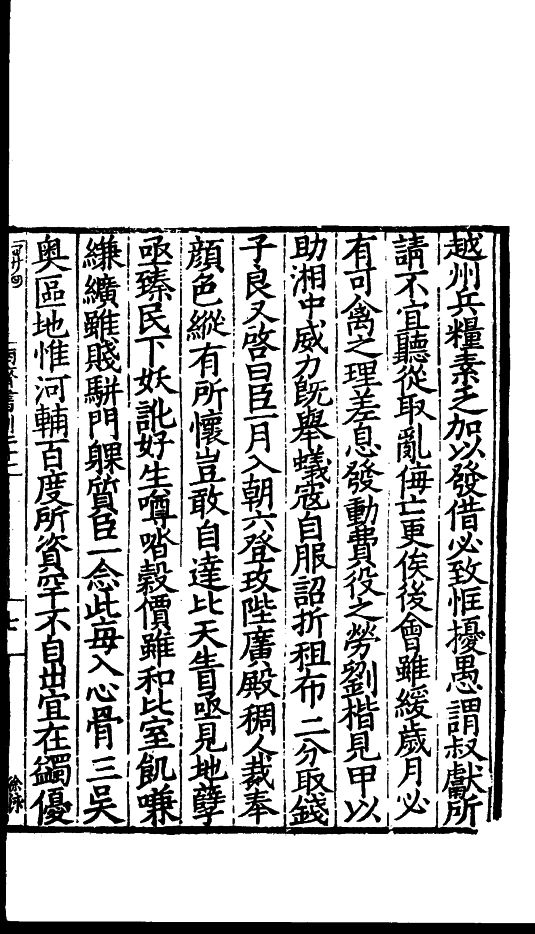 越州兵糧素乏加以發借必致恇擾愚謂叔獻所
請不宜聽從取亂侮亡更俟後會雖緩歲月必
有可禽之理差息發動費役之勞劉楷見甲以
助湘中威力既舉蟻寇自服詔折租布二分取錢
子良又啓曰臣一月入朝六登玫陛廣殿稠人裁奉
顔色縱有所懷豈敢自達比天眚亟見地孽
亟臻民下妖訛好生噂㗳穀價雖和比室飢嗛
縑纊雖賤駢門躶質臣一念此每入心骨三吳
奥區地惟河輔百度所資罕不自出宜在蠲優
南齊書列二十一
七
徐泳